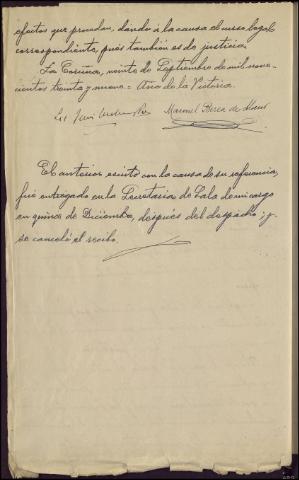 efectos que procedan, dando á la causa el curso legal
correspondiente, pués tambien es de justicia.
La Coruña, veinte de Septiembre de mil nove-
cientos treinta y nueve = Año de la Victoria.
Manuel Berea de
El anterior escrito con la causa de su referencia,
fué entregado en la Secretaria de Sala de mi cargo
en quince de Diciembre, después del despacho; y
se canceló el recibo.